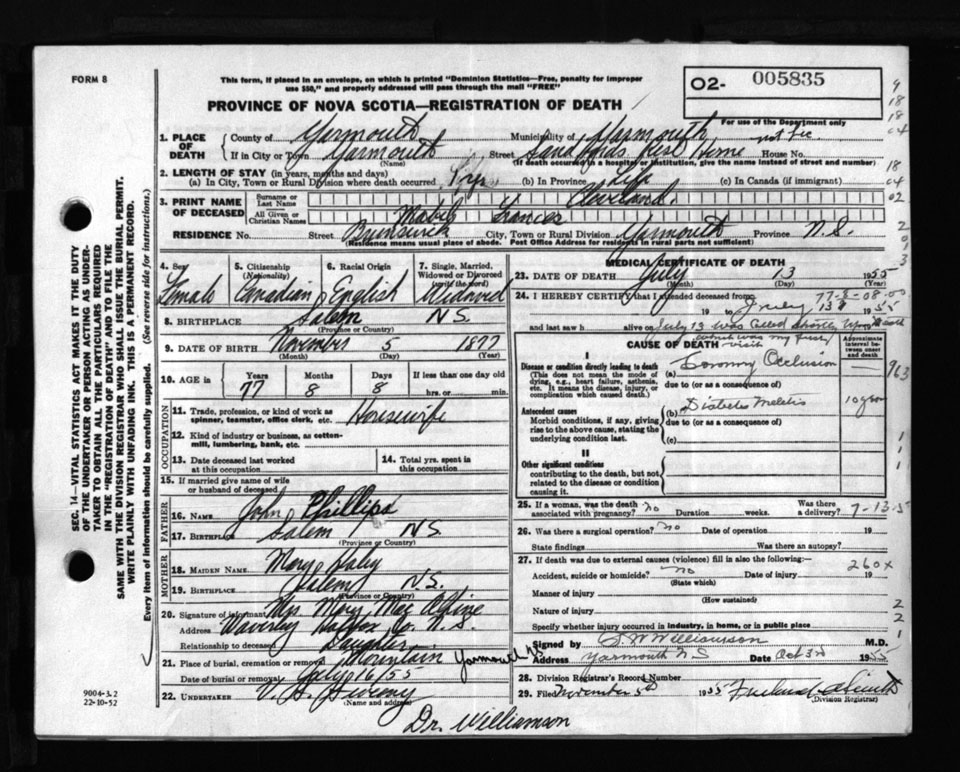 FORM 8
This form, if placed in an envelope, on which is printed "Dominion Statistics—Free, penalty for improper
use $50," and properly addressed will pass through the mail "FREE"
O2- 005835
PROVINCE OF NOVA SCOTIA—REGISTRATION OF DEATH
For use of the Department only
1. PLACE OF DEATH
County of Yarmouth Municipality of Yarmouth
If in City or Town Yarmouth Street Rest Home House No.
(Name) (If death occurred in a hospital or institution, give the name instead of street and number)
2. LENGTH OF STAY (in years, months and days)
(a) In City, Town or Rural Division where death occurred (b) In Province Life (c) In Canada (if immigrant)
3. PRINT NAME OF DECEASED
Surname or Last Name Cleveland
All Given or Christian Names Mabel Frances
RESIDENCE No. Street Brunswick City, Town or Rural Division Yarmouth Province N.S.
(Residence means usual place of abode. Post Office Address for residents in rural parts not sufficient)
4. Sex Female
5. Citizenship (Nationality) Canadian
6. Racial Origin English
7. Single, Married, Widowed or Divorced (write the word) Widowed
8. BIRTHPLACE Salem N.S.
(Province or Country)
9. DATE OF BIRTH November 5 1877
(Month) (Day) (Year)
10. AGE in Years Months Days If less than one day old
77 8 8 hrs. or min.
OCCUPATION
11. Trade, profession, or kind of work as
spinner, teamster, office clerk, etc. Housewife
12. Kind of industry or business, as cotton-
mill, lumbering, bank, etc.
13. Date deceased last worked
at this occupation
14. Total yrs. spent in
this occupation
15. If married give name of wife
or husband of deceased
FATHER
16. NAME John Phillips
17. BIRTHPLACE Salem N.S.
(Province or Country)
MOTHER
18. MAIDEN NAME Mary Haley
19. BIRTHPLACE Salem N.S.
(Province or Country)
20. Signature of informant Mrs Mary Mac Alpine
Address Waverley Halifax Co. N.S.
Relationship to deceased Daughter
21. Place of burial, cremation or removal Mountain Yarmouth NS
Date of burial or removal July 16/55
22. UNDERTAKER V. Sweeny
(Name and address)
Dr. Williamson
MEDICAL CERTIFICATE OF DEATH
23. DATE OF DEATH July 13 1955
(Month) (Day) (Year)
24. I HEREBY CERTIFY that I attended deceased from 77-8-08-00
19 to July 13 1955
and last saw h alive on July 13 was called shortly
which was my first visit
CAUSE OF DEATH
Approximate interval between onset and death
I
Disease or condition directly leading to death
(This does not mean the mode of dying, e.g., heart failure, asthenia, etc. It means the disease, injury, or complication which caused death.)
(a) Coronary Occlusion
963
due to (or as a consequence of)
Antecedent causes
Morbid conditions, if any, giving rise to the above cause, stating the underlying condition last.
(b) Diabetes 10 years
due to (or as a consequence of)
(c)
II
Other significant conditions
contributing to the death, but not related to the disease or condition causing it.
25. If a woman, was the death associated with pregnancy? no Duration weeks. Was there a delivery? 7-13-5
26. Was there a surgical operation? no Date of operation 19
State findings Was there an autopsy?
27. If death was due to external causes (violence) fill in also the following:
260X
Accident, suicide or homicide? no Date of injury 19
(State which)
Manner of injury
(How sustained)
Nature of injury
Specify whether injury occurred in industry, in home, or in public place
Signed by Williamson M.D.
Address Yarmouth N S Date Oct 3rd 1955
28. Division Registrar's Record Number
29. Filed 1955
(Division Registrar)
SEC. 14—VITAL STATISTICS ACT MAKES IT THE DUTY
OF THE UNDERTAKER OR PERSON ACTING AS UNDER-
TAKER TO OBTAIN ALL THE PARTICULARS REQUIRED
IN THE "REGISTRATION OF DEATH" AND TO FILE THE
SAME WITH THE DIVISION REGISTRAR WHO SHALL ISSUE THE BURIAL PERMIT.
WRITE PLAINLY WITH UNFADING INK. THIS IS A PERMANENT RECORD.
Every item of information should be carefully supplied. (See reverse side for instructions.)
9004-3.2
22-10-52